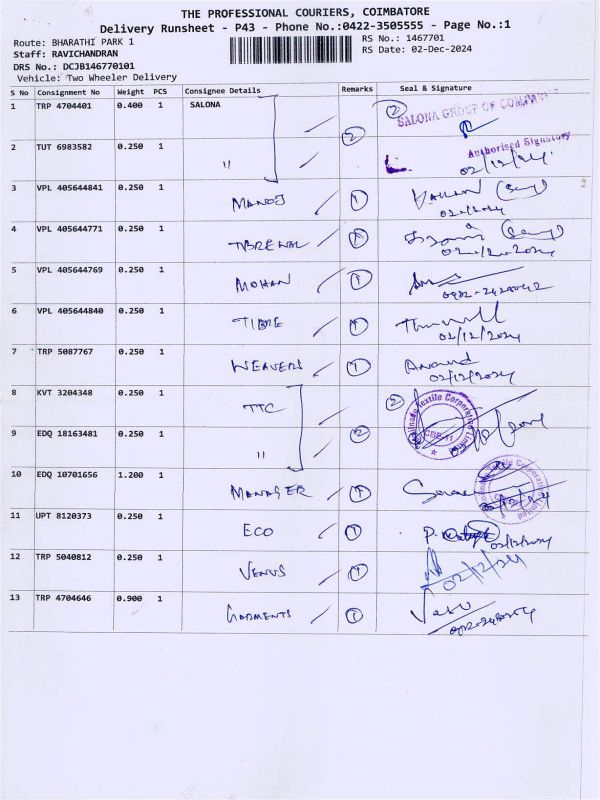 THE PROFESSIONAL COURIERS, COIMBATORE
Delivery Runsheet - P43 - Phone No.:0422-3505555 - Page No.:1
Route: BHARATHI PARK 1
RS No.: 1467701
Staff: RAVICHANDRAN
RS Date: 02-Dec-2024
DRS No.: DCJB146770101
Vehicle: Two Wheeler Delivery
S No Consignment No Weight PCS Consignee Details Remarks Seal & Signature
1 TRP 4704401 0.400 1 SALONA 2
SALONA GROUP OF COMPAN
2 TUT 6983582 0.250 1 " 2 Authorised Signatory
02/12/24
3 VPL 405644841 0.250 1 MANOJ 1
4 VPL 405644771 0.250 1 1
5 VPL 405644769 0.250 1 MOHAN 1
6 VPL 405644840 0.250 1 TIBRE 1
02/12/2024
7 TRP 5087767 0.250 1 WEAVERS 1 Anand
02/12/2024
8 KVT 3204348 0.250 1 TTC 2
Textile Corporation Limited
CBE-11
9 EDQ 18163481 0.250 1 " 2
10 EDQ 10701656 1.200 1 MANAGER 1
Textile Corporation Limited
11 UPT 8120373 0.250 1 ECO 1
02/12/2024
12 TRP 5040812 0.250 1 VENUS 1 02/12/24
13 TRP 4704646 0.900 1 GARMENTS 1